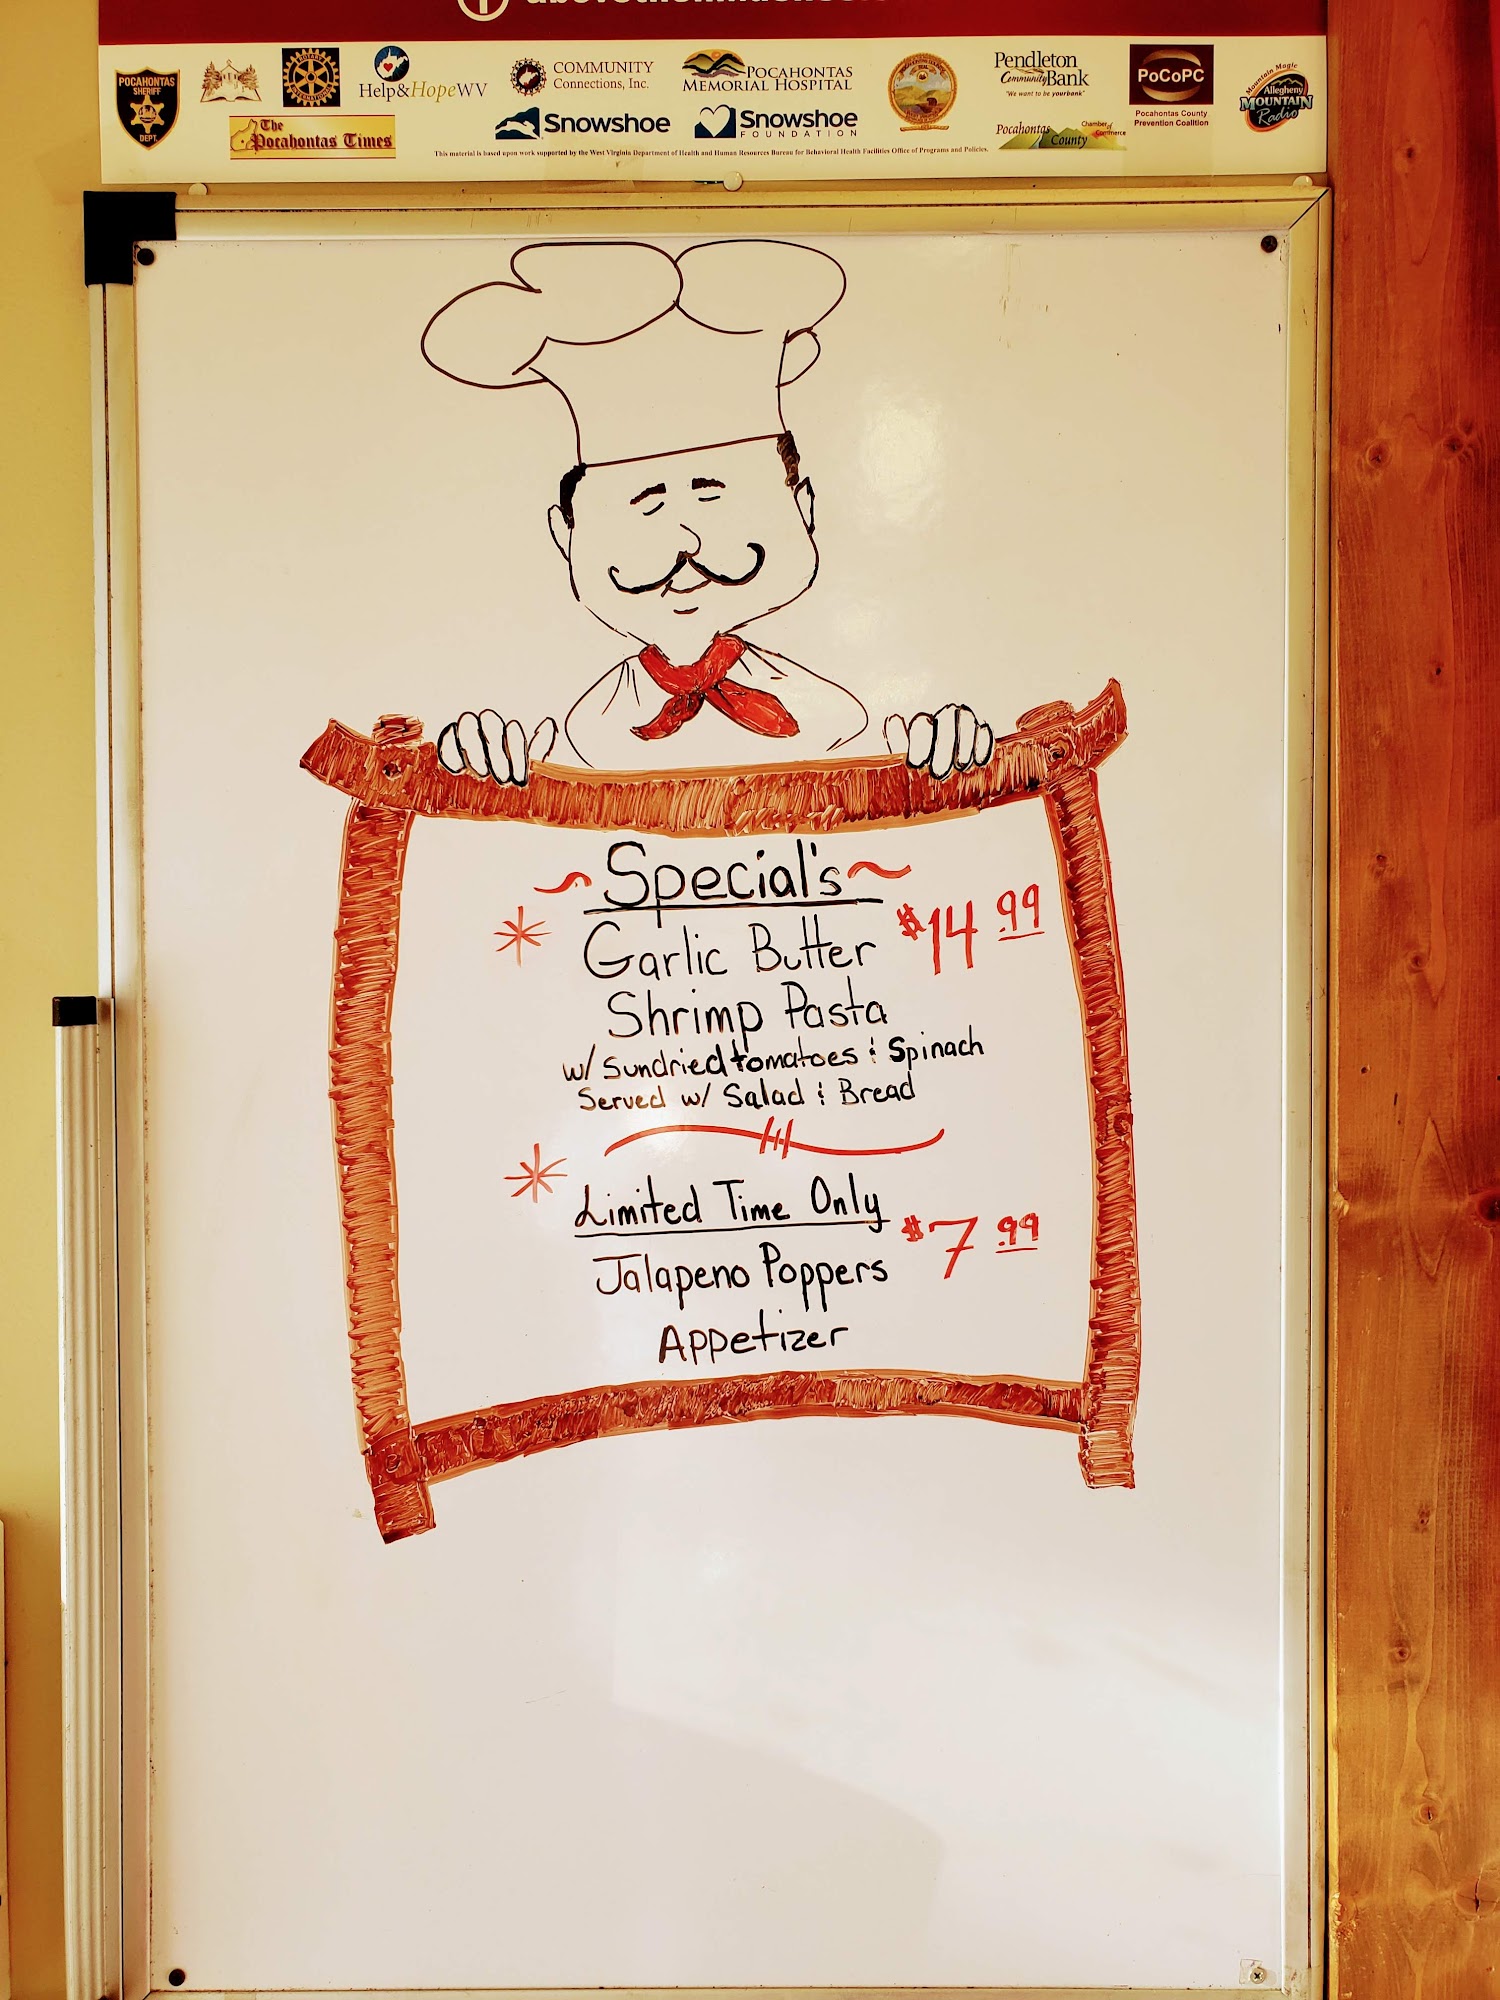 POCAHONTAS
SHERIFF
DEPT.
ROTARY
INTERNATIONAL
Help&HopeWV
COMMUNITY
Connections, Inc.
POCAHONTAS
MEMORIAL HOSPITAL
Pendleton
CommunityBank
"We want to be yourbank"
PoCoPC
Pocahontas County
Prevention Coalition
Mountain Magic
Allegheny
MOUNTAIN
Radio
The
Pocahontas Times
Snowshoe
Snowshoe
FOUNDATION
Pocahontas
County
Chamber of
Commerce
This material is based upon work supported by the West Virginia Department of Health and Human Resources Bureau for Behavioral Health Facilities Office of Programs and Policies.
Special's
Garlic Butter $14.99
Shrimp Pasta
w/ Sundried tomatoes & Spinach
Served w/ Salad & Bread
Limited Time Only
Jalapeno Poppers $7.99
Appetizer